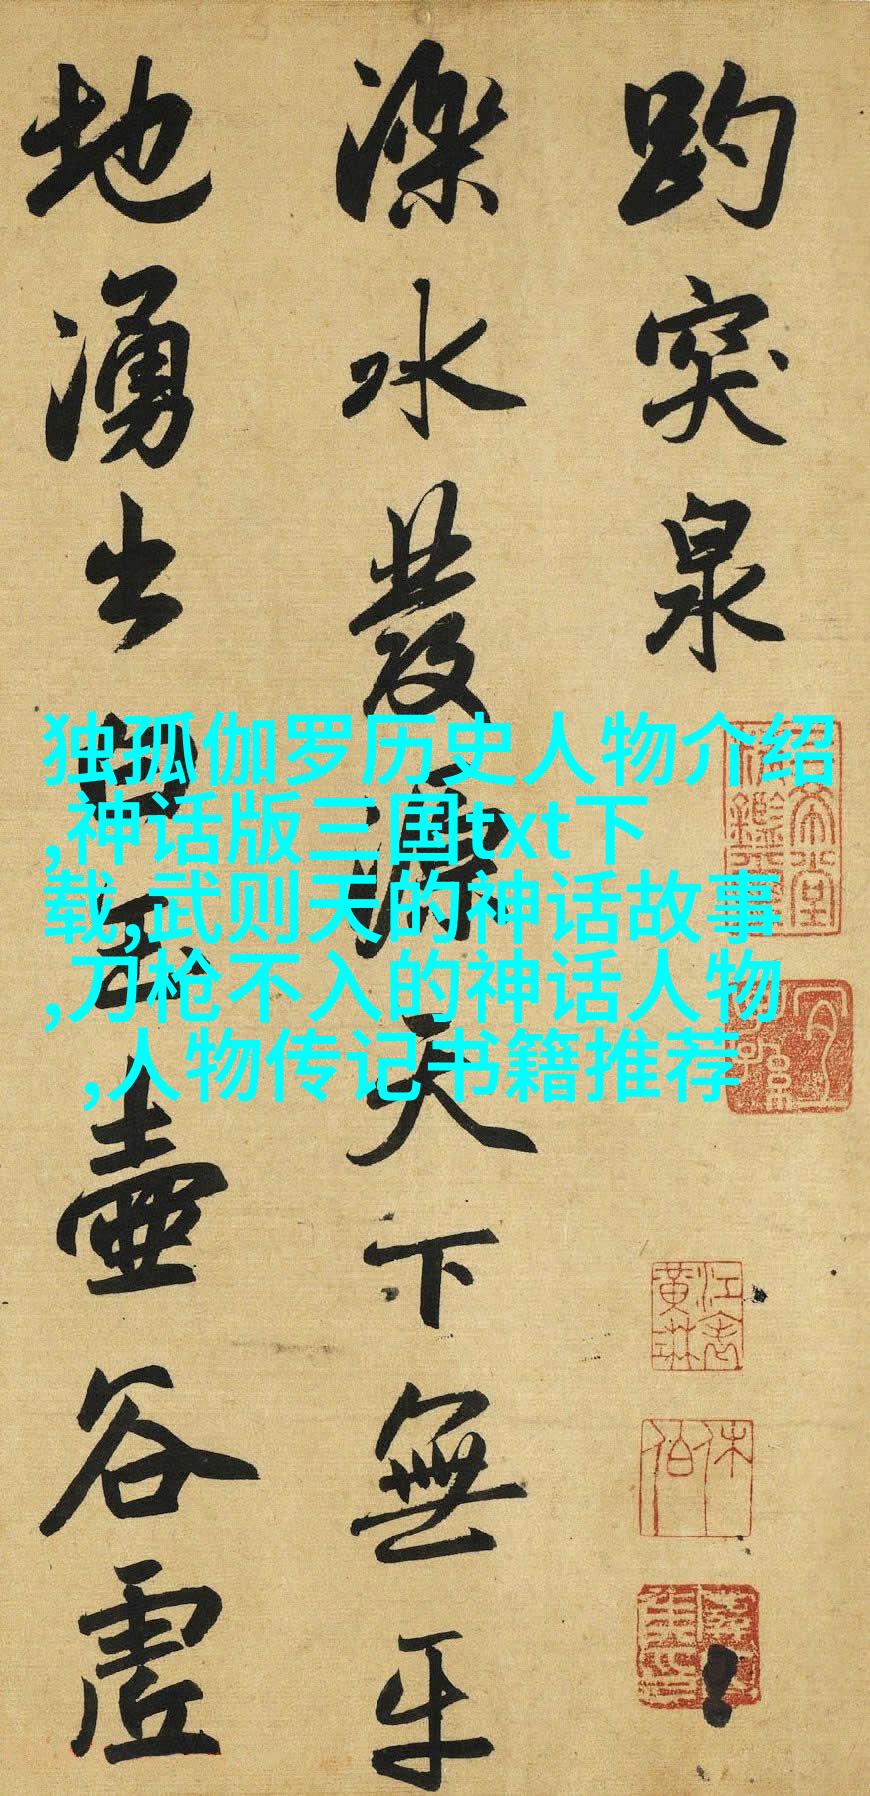 趵突泉
濼水發源天下無平
地湧出白玉壺谷虛
独孤伽罗历史人物介绍
,神话版三国txt下
载,武则天的神话故事
,刀枪不入的神话人物
,人物传记书籍推荐
江表黃琳
休伯